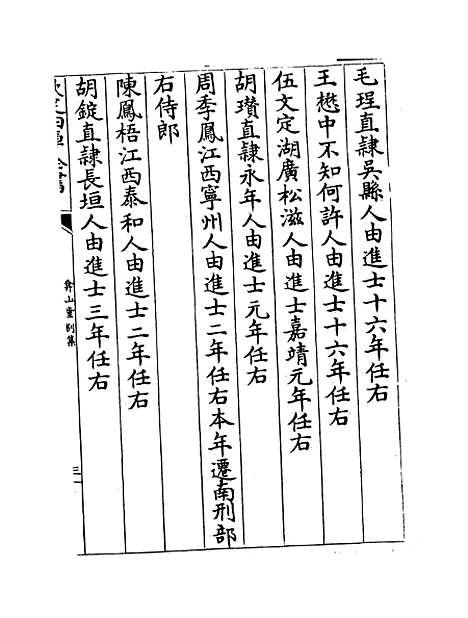 毛珵直隸吳縣人由進士十六年任右
王懋中不知何許人由進士十六年任右
伍文定湖廣松滋人由進士嘉靖元年任右
胡瓚直隸永年人由進士元年任右
周季鳳江西寧州人由進士二年任右本年遷南刑部
右侍郎
陳鳳梧江西泰和人由進士二年任右
胡錠直隸長垣人由進士三年任右
弇山堂別集